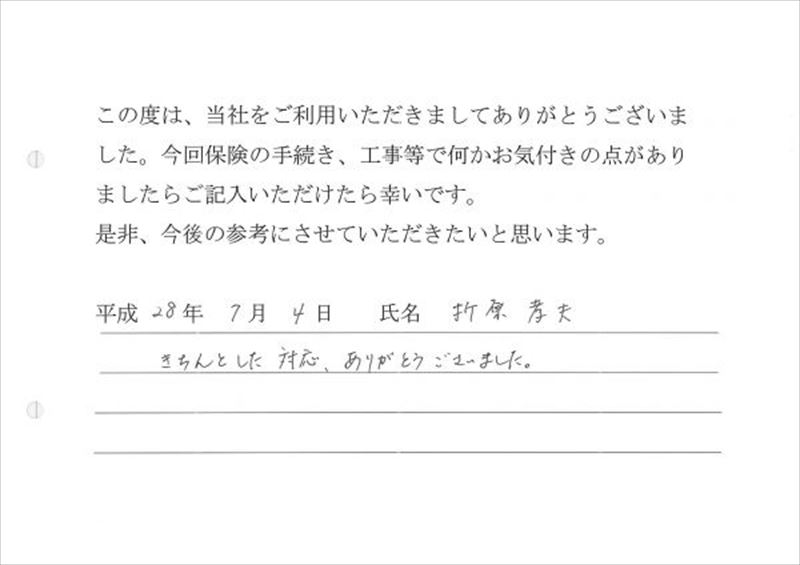 この度は、当社をご利用いただきましてありがとうございま
した。今回保険の手続き、工事等で何かお気付きの点があり
ましたらご記入いただけたら幸いです。
是非、今後の参考にさせていただきたいと思います。
平成 28年 7月 4日 氏名 折原 孝夫
きちんとした 対応、ありがとうございました。